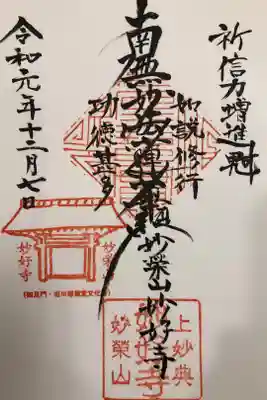 祈信力増進也
如説修行
南無妙法蓮華経
功徳甚多
妙栄山妙好寺
令和元年十二月七日
妙栄山
妙好寺
上妙典
妙好寺
妙榮山